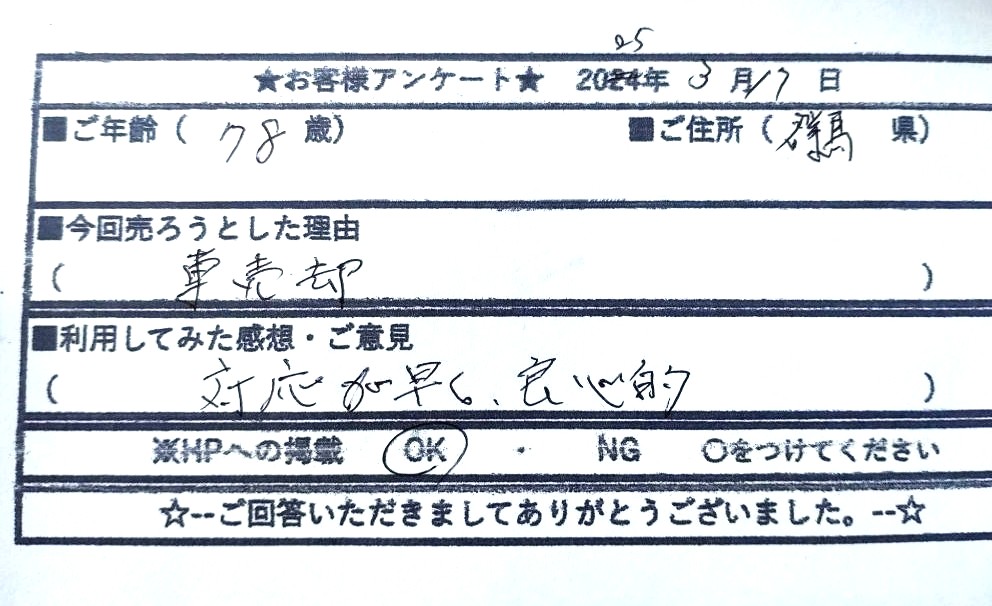 25
★お客様アンケート★ 2024年 3月17日
■ご年齢（ 78 歳） ■ご住所（ 群馬 県）
■今回売ろうとした理由
（ 車売却 ）
■利用してみた感想・ご意見
（ 対応が早く、良心的 ）
※HPへの掲載 OK ・ NG 〇をつけてください
☆--ご回答いただきましてありがとうございました。--☆